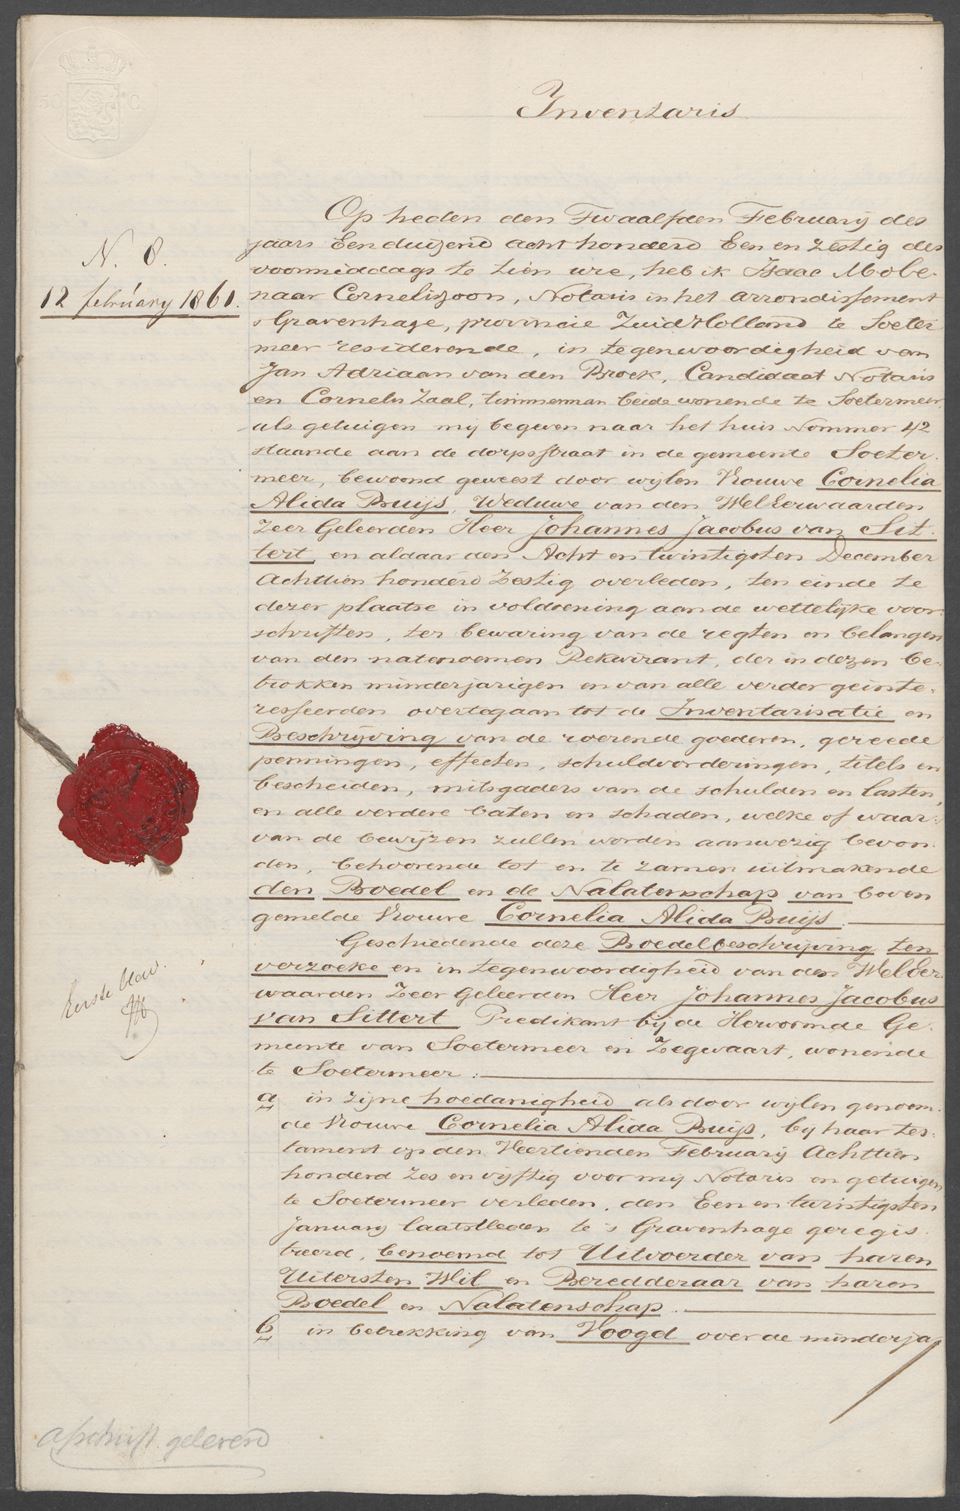 Inventaris
N. 8.
12 february 1861.
Op heden den Twaalfden February des
jaars Een duizend acht honderd Een en zestig des
voormiddags te tien ure, heb ik Isaac Mole-
naar Corneliszoon, Notaris in het arrondissement
's Gravenhage, provincie Zuid Holland te Soeter
meer resideerende, in tegenwoordigheid van
Jan Adriaan van den Broek, Candidaat Notaris
en Cornelis Zaal, timmerman beide wonende te Soetermeer,
als getuigen mij begeven naar het huis Nommer 42
staande aan de dorpsstraat in de gemeente Soeter-
meer, bewoond geweest door wijlen Vrouwe Cornelia
Alida Buijs, Weduwe van den WelEerwaarden
Zeer Geleerden Heer Johannes Jacobus van Sit-
tert en aldaar den Acht en twintigsten December
Achttien honderd Zestig overleden, ten einde te
dezer plaatse in voldoening aan de wettelijke voor-
schriften, ter bewaring van de regten en belangen
van den natenoemen Rekwirant, der in dezen be-
trokken minderjarigen en van alle verder geinte-
resseerden overtegaan tot de Inventarisatie en
Beschrijving van de roerende goederen, gereede
penningen, effecten, schuldvorderingen, titels en
bescheiden, mitsgaders van de schulden en lasten,
en alle verdere baten en schaden, welke of waar-
van de bewijzen zullen worden aanwezig bevon-
den, behoorende tot en te zamen uitmakende
den Boedel en de Nalatenschap van boven
gemelde Vrouwe Cornelia Alida Buijs.
Geschiedende deze Boedelbeschrijving ten
verzoeke en in tegenwoordigheid van den WelEer
waarden Zeer Geleerden Heer Johannes Jacobus
van Sittert Predikant bij de Hervormde Ge-
meente van Soetermeer en Zegwaart, wonende
te Soetermeer:
a in zijne hoedanigheid als door wijlen genoem-
de Vrouwe Cornelia Alida Buijs, bij haar tes-
tament op den Veertienden February Achttien
honderd zes en vijftig voor mij Notaris en getuigen
te Soetermeer verleden, den Een en twintigsten
January laatstleden te 's Gravenhage geregis-
treerd, benoemd tot Uitvoerder van haren
Uitersten Wil en Beredderaar van haren
Boedel en Nalatenschap.
b in betrekking van Voogd over de minderja
Eerste
afschrift geleverd